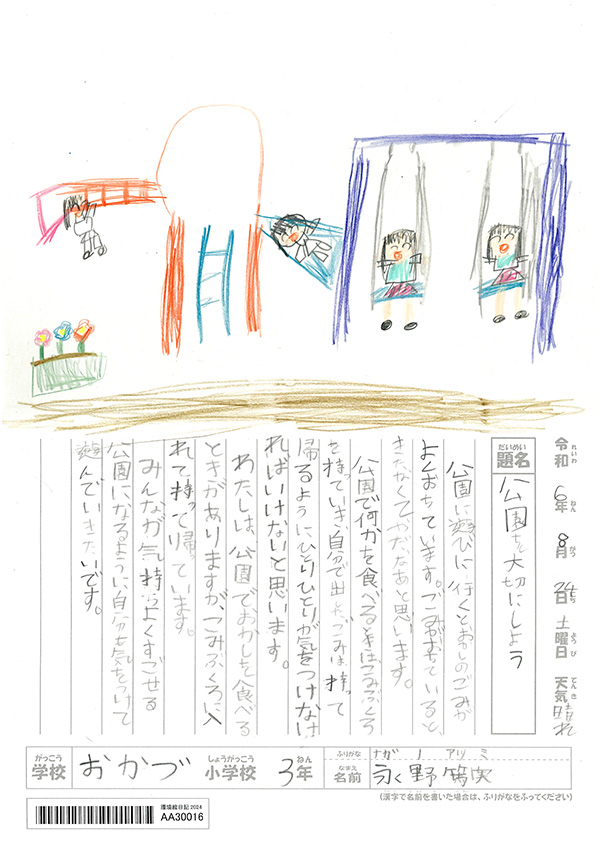 令和 6年 8月 24日 土曜日 天気 晴れ
れいわ ねん がつ にち ようび てんき
だいめい
題名 公園を大切にしよう
公園に遊びに行くとおかしのごみが
よくおちています。ごみがおちていると
きたなくてやだなあと思います。
公園で何かを食べるときはごみぶくろ
を持ていき、自分で出たごみは、持って
帰るようにひとりひとりが気をつけなけ
ればいけないと思います。
わたしは、公園でおかしを食べる
ときがありますが、ごみぶくろに入
れて持って帰っています。
みんなが気持ちよくすごせる
公園になるように自分も気をつけて
遊んでいきたいです。
がっこう しょうがっこう ねん
学校 おかづ 小学校 3年
ふりがな ナガノ アツミ
なまえ
名前 永野 篤実
(漢字で名前を書いた場合は、ふりがなをふってください)
環境絵日記 2024
AA30016